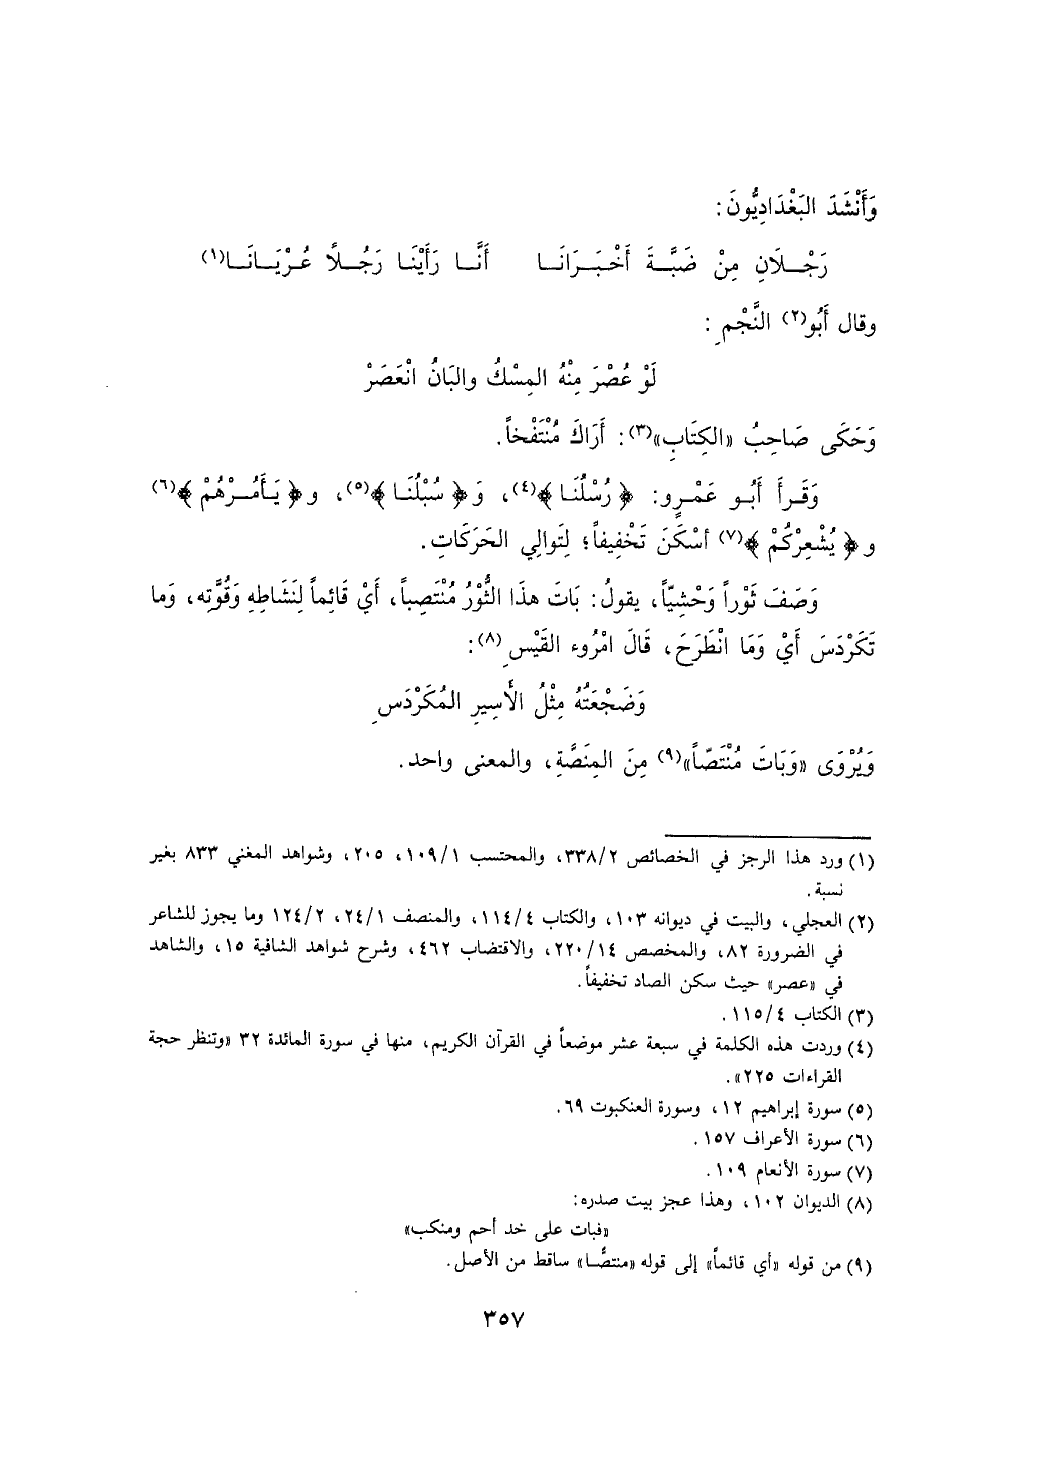 وَأَنْشَدَ البَغْدَادِيُّونَ:
رَجْلَانِ مِنْ ضَبَّةَ أَخْبَرَانَا أَنَّا رَأَيْنَا رَجُلاً عُرْيَانَا(١)
وقال أَبُو(٢) النَّجْمِ:
لَوْ عُصْرَ مِنْهُ المِسْكُ والبَانُ انْعَصَرْ
وَحَكَى صَاحِبُ «الكِتَابِ»(٣): أَرَاكَ مُنْتَفْخاً.
وَقَرأَ أَبُو عَمْرٍو: ﴿رُسْلُنَا﴾(٤)، وَ﴿سُبْلُنَا﴾(٥)، و﴿يَأْمُرْهُمْ﴾(٦)
و﴿يُشْعِرْكُمْ﴾(٧) أسْكَنَ تَخْفِيفاً؛ لِتَوالِي الحَرَكَاتِ.
وَصَفَ ثَوْراً وَحْشِيّاً، يقولُ: بَاتَ هذَا الثَّوْرُ مُنْتَصِباً، أَيْ قَائِماً لِنَشَاطِهِ وَقُوَّتِه، وَما
تَكَرْدَسَ أَيْ وَمَا انْطَرَحَ، قَالَ امْرُوء القَيْسِ(٨):
وَضَجْعَتُهُ مِثْلُ الأَسِيرِ المُكَرْدَسِ
وَيُرْوَى «وَبَاتَ مُنْتَصّاً»(٩) مِنَ المِنَصَّةِ، والمعنى واحد.
(١) ورد هذا الرجز في الخصائص ٣٣٨/٢، والمحتسب ١٠٩/١، ٢٠٥، وشواهد المغني ٨٣٣ بغير
نسبة.
(٢) العجلي، والبيت في ديوانه ١٠٣، والكتاب ١١٤/٤، والمنصف ٢٤/١، ١٢٤/٢ وما يجوز للشاعر
في الضرورة ٨٢، والمخصص ٢٢٠/١٤، والاقتضاب ٤٦٢، وشرح شواهد الشافية ١٥، والشاهد
في «عصر» حيث سكن الصاد تخفيفاً.
(٣) الكتاب ١١٥/٤.
(٤) وردت هذه الكلمة في سبعة عشر موضعاً في القرآن الكريم، منها في سورة المائدة ٣٢ «وتنظر حجة
القراءات ٢٢٥».
(٥) سورة إبراهيم ١٢، وسورة العنكبوت ٦٩.
(٦) سورة الأعراف ١٥٧.
(٧) سورة الأنعام ١٠٩.
(٨) الديوان ١٠٢، وهذا عجز بيت صدره:
«فبات على خد أحم ومنكب»
(٩) من قوله «أي قائماً» إلى قوله «منتصًّا» ساقط من الأصل.
٣٥٧